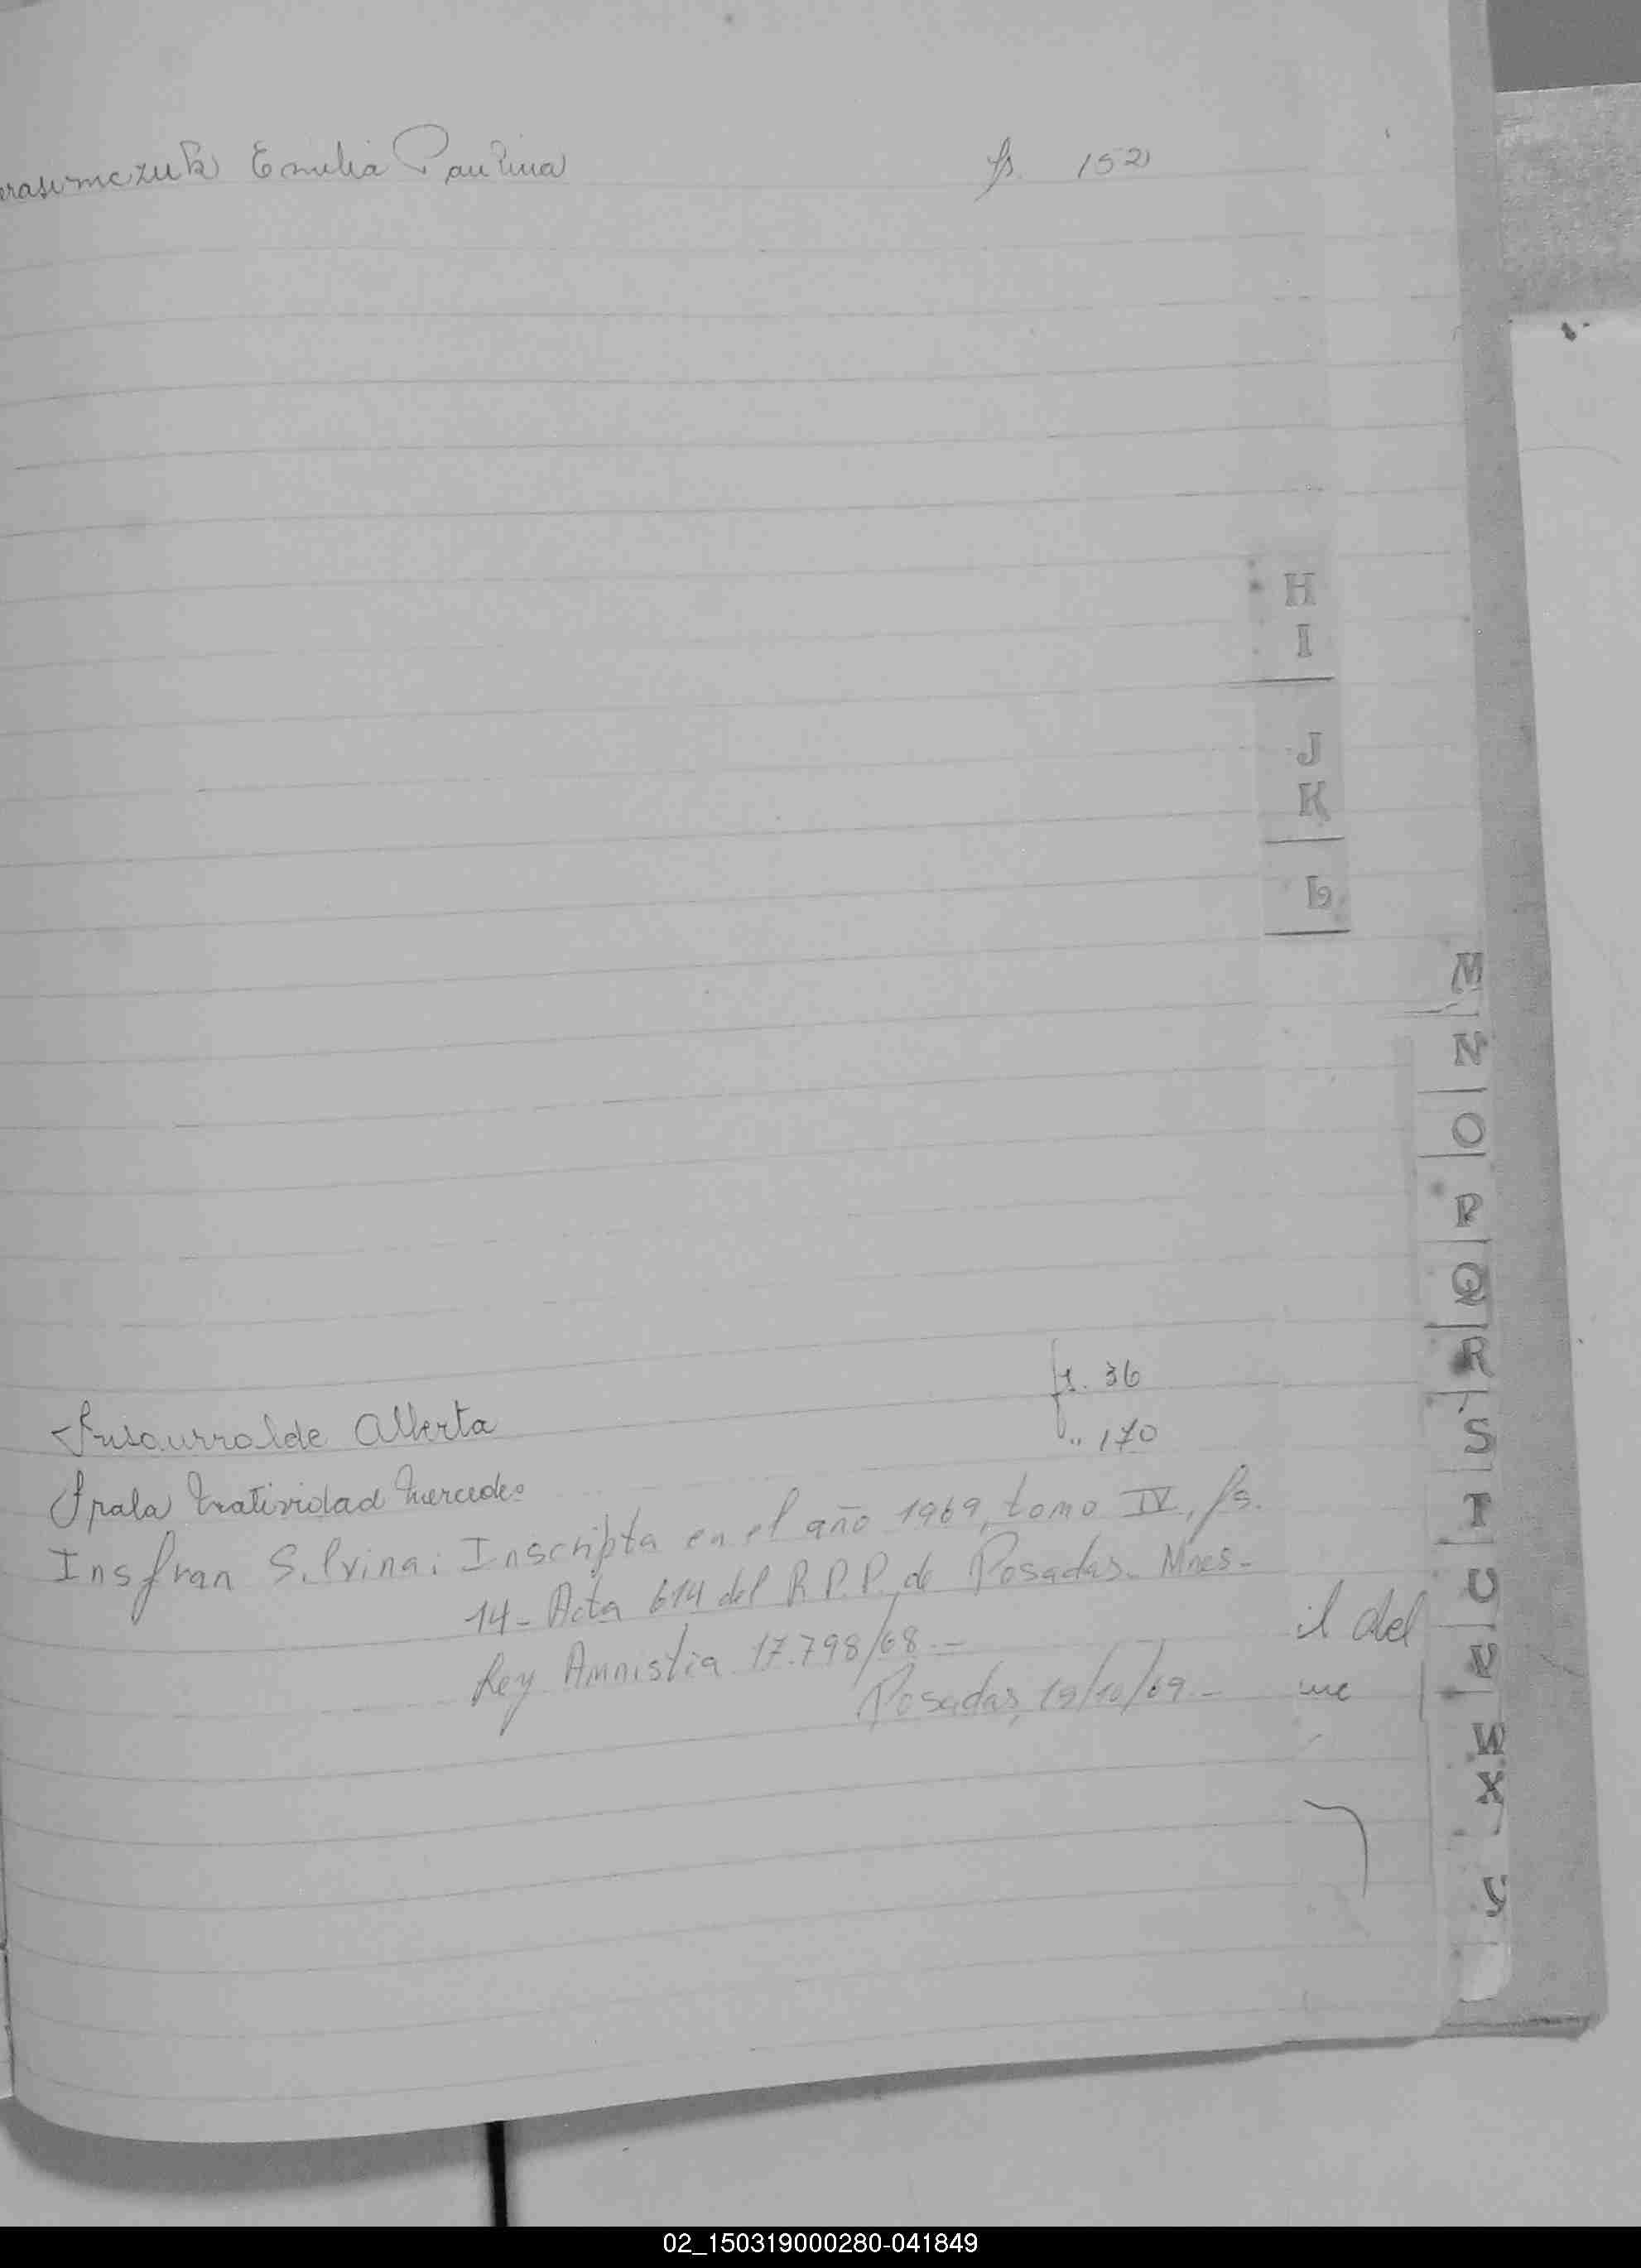 erasimczuk Emilia Paulina fs. 152
H
I
J
K
L
M
N
O
P
Q
R
S
T
U
V
W
X
Insaurralde Alberta fs. 36
Irala Natividad Mercedes " 170
Insfran Silvina: Inscripta en el año 1969, tomo IV, fs.
14- Acta 614 del R.P.P. de Posadas. Mnes-
Ley Amnistia 17.798/68.-
Posadas, 15/10/69.-
il del
me
02_150319000280-041849